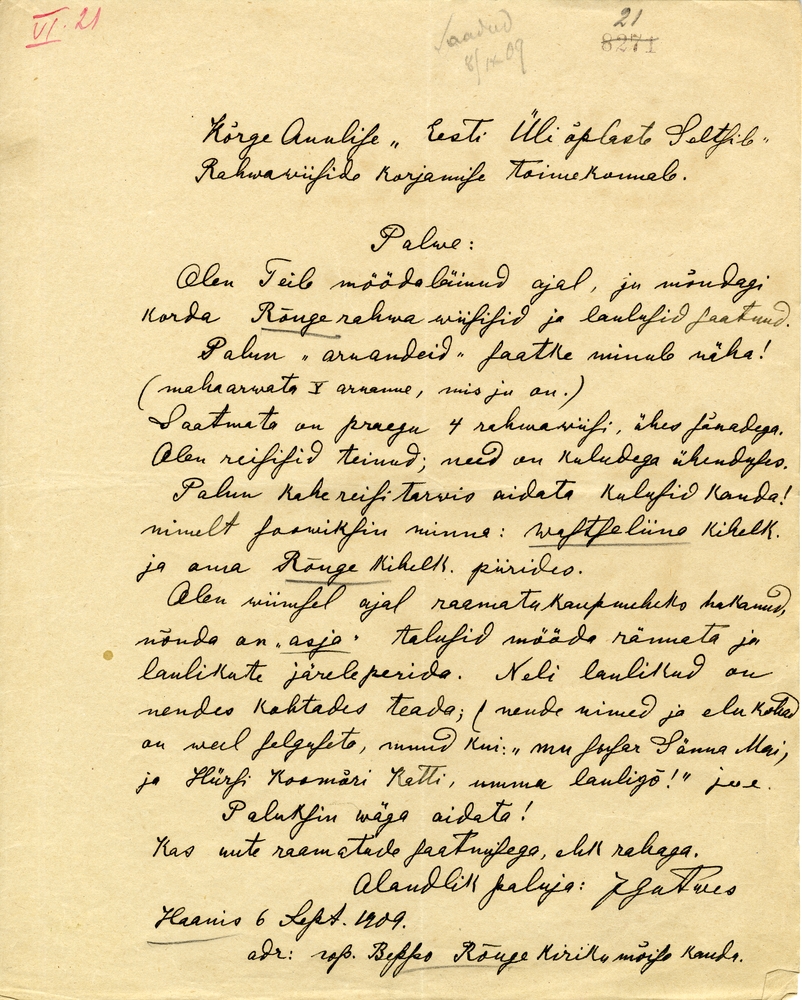 VI. 21
Saadud
8/IX 09
21
8271
Kõrge Aulise „Eesti Üliõplaste Seltsil"
Rahwawiiside korjamise toimekonnale.
Palwe:
Olen Teile möödaläinud ajal, ju mõndagi
korda Rõuge rahwa wiisisid ja laulusid saatnud.
Palun „aruandeid" saatke minule näha!
(mahaarwata V aruanne, mis ju on.)
Saatmata on praegu 4 rahwawiisi, ühes sõnadega.
Olen reisisid teinud; need on kuludega ühenduses.
Palun kahe reisi tarwis aidata kulusid kanda!
nimelt soowiksin minna: wastseliina kihelk.
ja oma Rõuge kihelk. piirides.
Olen wiimsel ajal raamatukaupmeheks hakanud,
nõnda on „asja" talusid mööda rännata ja
laulikute järele perida. Neli laulikud on
nendes kohtades teada; (nende nimed ja elu kohad
on weel selguseta, muud kui: „mu sysar Sänna Mai,
ja Hürsi Koomäri Katti, umma lauligõ!" jne.
Paluksin wäga aidata!
Kas uute raamatude saatmisega, ehk rahaga.
Alandlik paluja: J Gutwes
Haanis 6 Sept. 1909.
adr: Rõuge Kiriku mõisa kaudu.